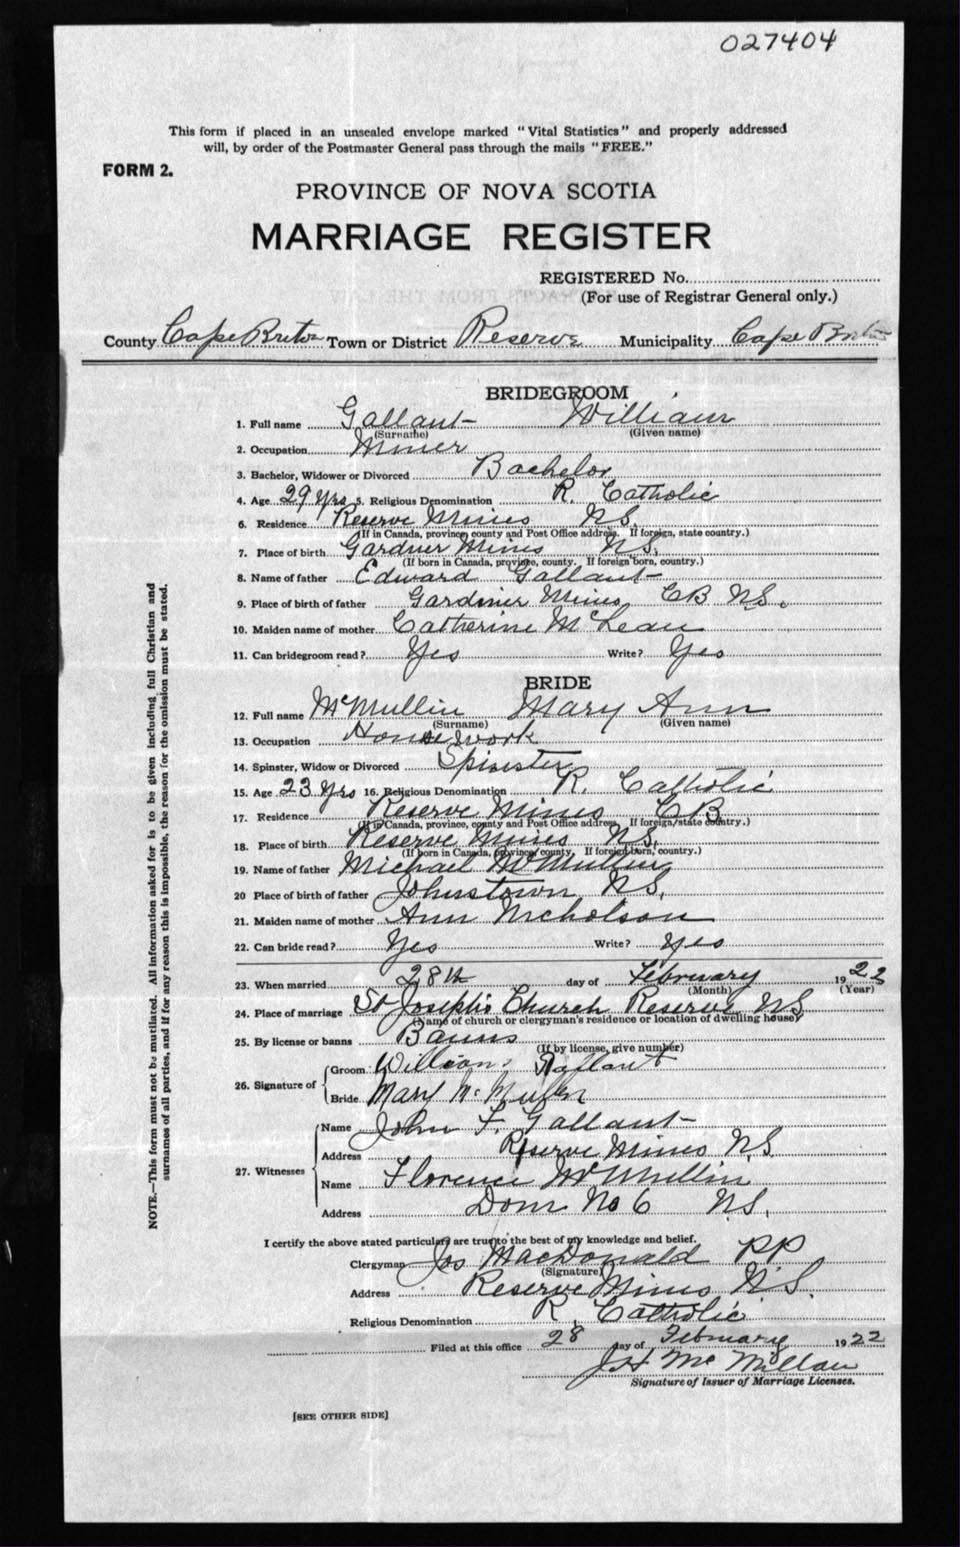 027404
This form if placed in an unsealed envelope marked "Vital Statistics" and properly addressed
will, by order of the Postmaster General pass through the mails "FREE."
FORM 2.
PROVINCE OF NOVA SCOTIA
MARRIAGE REGISTER
REGISTERED No.
(For use of Registrar General only.)
County Cape Breton Town or District Reserve Municipality Cape Breton
BRIDEGROOM
1. Full name Gallant William
(Surname) (Given name)
2. Occupation Miner
3. Bachelor, Widower or Divorced Bachelor
4. Age 29 Yrs 5. Religious Denomination R. Catholic
6. Residence Reserve Mines N.S.
(If in Canada, province, county and Post Office address. If foreign, state country.)
7. Place of birth Gardner Mines N.S.
(If born in Canada, province, county. If foreign born, country.)
8. Name of father Edward Gallant
9. Place of birth of father Gardiner Mines CB N.S.
10. Maiden name of mother Catherine McLean
11. Can bridegroom read? Yes Write? Yes
BRIDE
12. Full name McMullin Mary Ann
(Surname) (Given name)
13. Occupation Housework
14. Spinster, Widow or Divorced Spinster
15. Age 23 Yrs 16. Religious Denomination R. Catholic
17. Residence Reserve Mines CB
(If in Canada, province, county and Post Office address. If foreign state country.)
18. Place of birth Reserve Mines N.S.
(If born in Canada, province, county. If foreign born, country.)
19. Name of father Michael McMullin
20 Place of birth of father Johnstown N.S.
21. Maiden name of mother Ann Nicholson
22. Can bride read? Yes Write? Yes
23. When married 28th day of February 1922
(Month) (Year)
24. Place of marriage St Joseph's Church Reserve N.S
(Name of church or clergyman's residence or location of dwelling house)
25. By license or banns Banns
(If by license, give number)
26. Signature of Groom William Gallant
Bride Mary McMullen
27. Witnesses Name John F. Gallant
Address Reserve Mines N.S.
Name Florence McMullin
Address Dom No 6 N.S.
I certify the above stated particulars are true to the best of my knowledge and belief.
Clergyman Jos MacDonald PP
(Signature)
Address Reserve Mines N.S.
Religious Denomination R. Catholic
Filed at this office 28 day of February 1922
JH McMillan
Signature of Issuer of Marriage Licenses.
[SEE OTHER SIDE]
NOTE.—This form must not be mutilated. All information asked for is to be given including full Christian and
surnames of all parties, and if for any reason this is impossible, the reason for the omission must be stated.